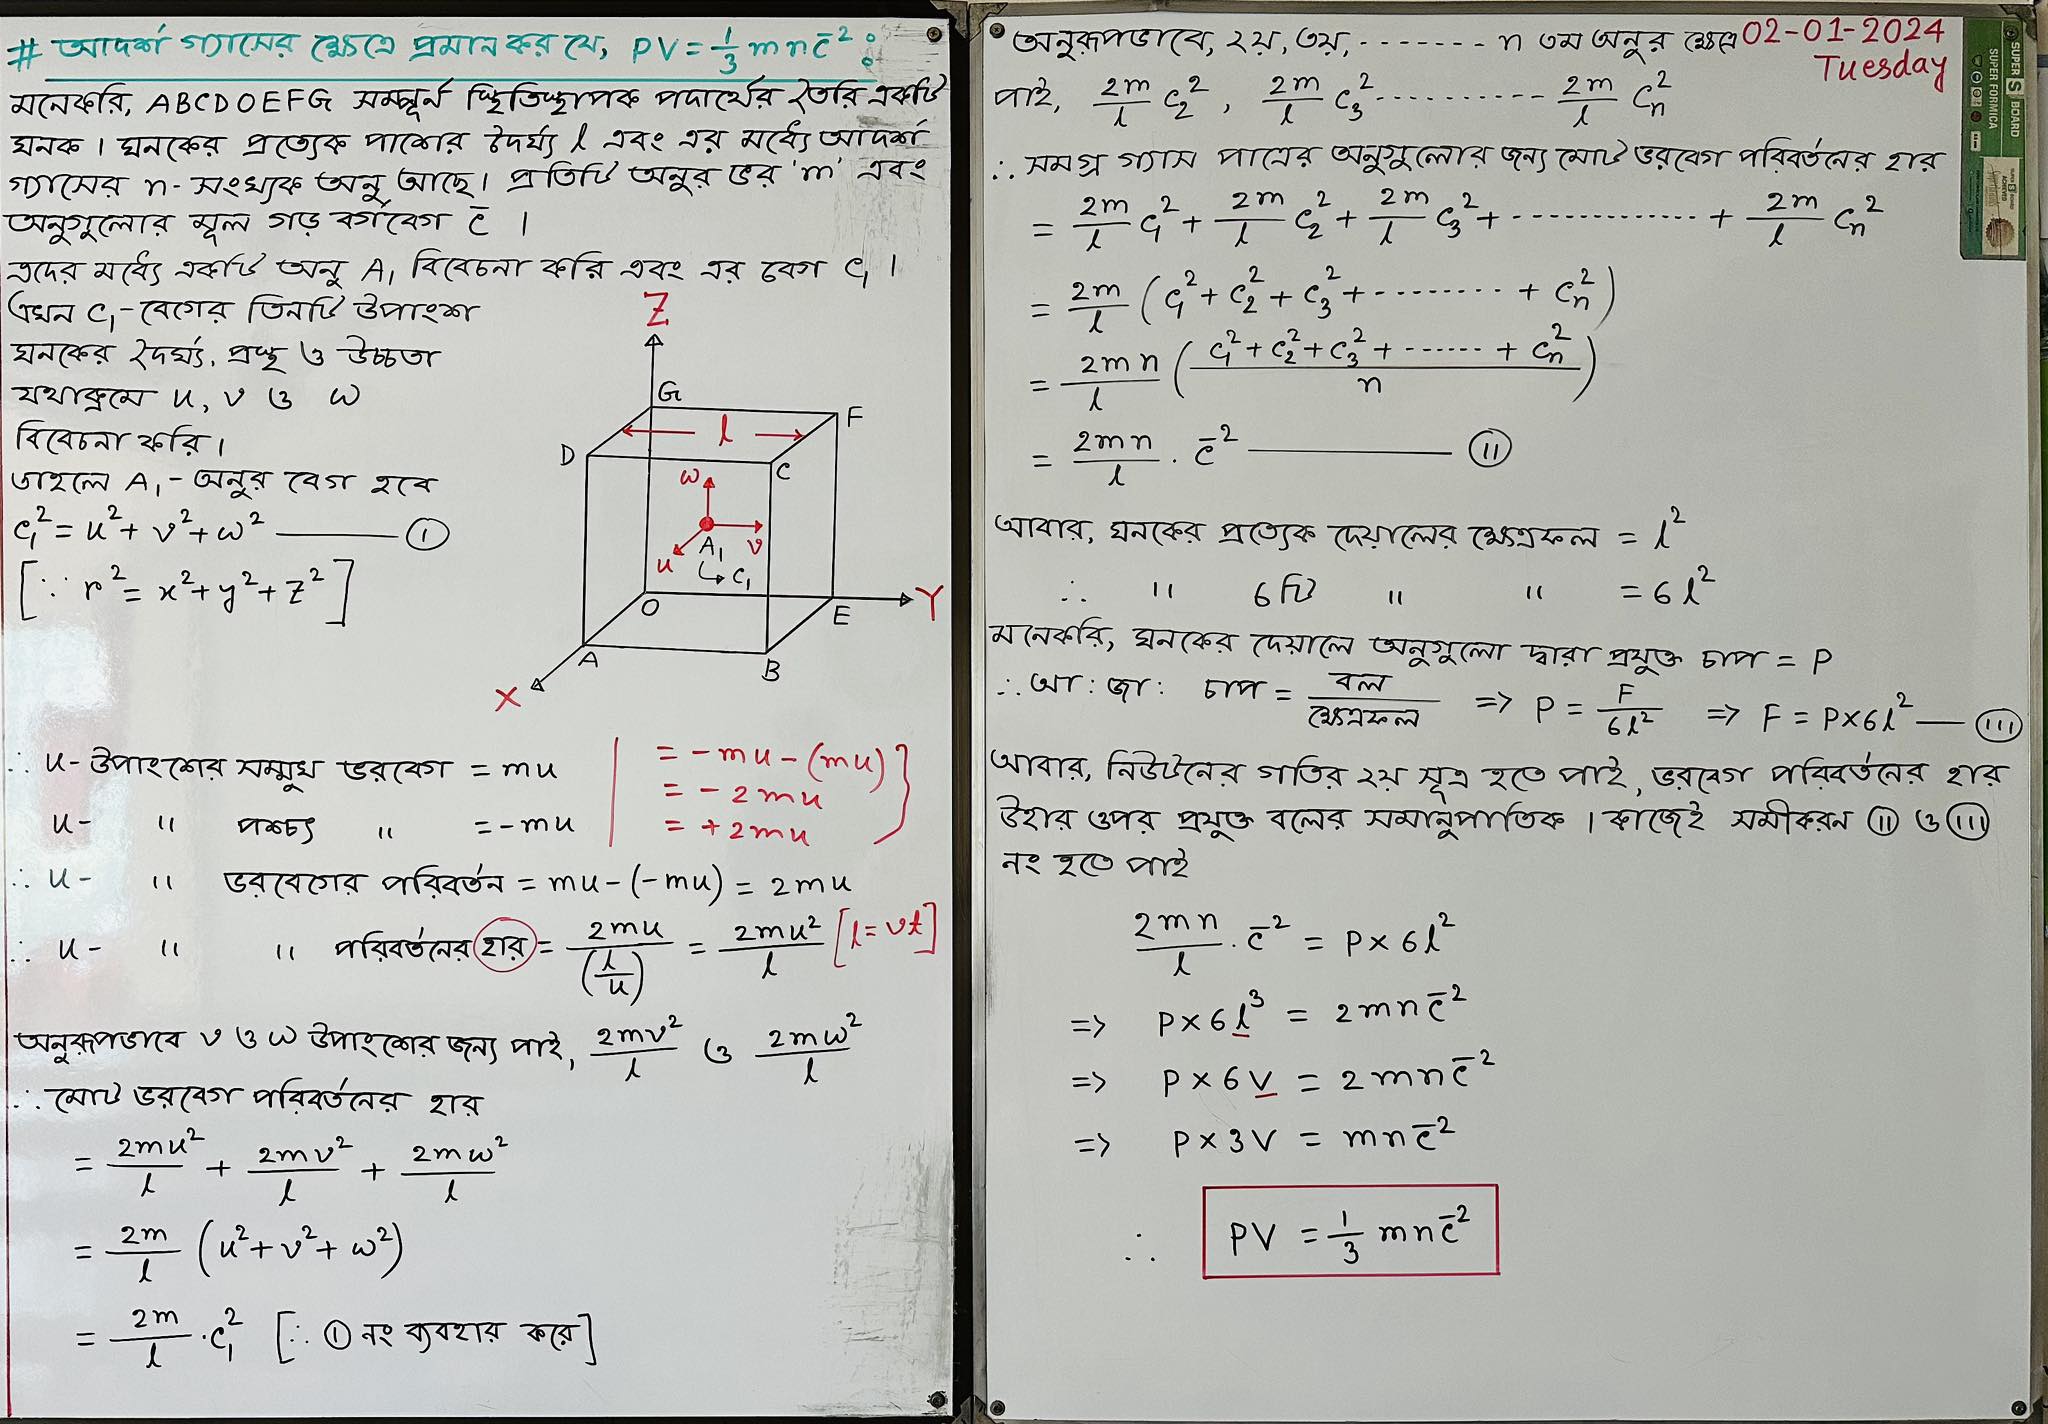 # আদর্শ গ্যাসের ক্ষেত্রে প্রমান কর যে, PV = 1/3 mn c̄² :
মনেকরি, ABCDOEFG সম্পূর্ন স্থিতিস্থাপক পদার্থের তৈরি একটি
ঘনক। ঘনকের প্রত্যেক পাশের দৈর্ঘ্য l এবং এর মধ্যে আদর্শ
গ্যাসের n-সংখ্যক অনু আছে। প্রতিটি অনুর ভর 'm' এবং
অনুগুলোর মূল গড় বর্গবেগ c̄ ।
এদের মধ্যে একটি অনু A₁ বিবেচনা করি এবং এর বেগ c₁ ।
এখন c₁-বেগের তিনটি উপাংশ
ঘনকের দৈর্ঘ্য, প্রস্থ ও উচ্চতা
যথাক্রমে u, v ও w
বিবেচনা করি।
তাহলে A₁-অনুর বেগ হবে
c₁² = u² + v² + w² ——— (I)
[∵ r² = x² + y² + z²]
Z
G
F
l
D
C
w
v
u
A₁
↳ c₁
O
E
Y
A
B
X
∴ u-উপাংশের সম্মুখ ভরবেগ = mu
u- " পশ্চাৎ " = -mu
= -mu - (mu)
= -2mu
= +2mu
∴ u- " ভরবেগের পরিবর্তন = mu - (-mu) = 2mu
∴ u- " " পরিবর্তনের হার = 2mu/(l/u) = 2mu²/l [l = vt]
অনুরূপভাবে v ও w উপাংশের জন্য পাই, 2mv²/l ও 2mw²/l
∴ মোট ভরবেগ পরিবর্তনের হার
= 2mu²/l + 2mv²/l + 2mw²/l
= 2m/l (u² + v² + w²)
= 2m/l . c₁² [∵ (I) নং ব্যবহার করে]
অনুরূপভাবে, ২য়, ৩য়, -------- n তম অনুর ক্ষেত্রে
02-01-2024
Tuesday
পাই, 2m/l c₂², 2m/l c₃² ---------- 2m/l cₙ²
∴ সমগ্র গ্যাস পাত্রের অনুগুলোর জন্য মোট ভরবেগ পরিবর্তনের হার
= 2m/l c₁² + 2m/l c₂² + 2m/l c₃² + ------------- + 2m/l cₙ²
= 2m/l (c₁² + c₂² + c₃² + --------- + cₙ²)
= 2mn/l ((c₁² + c₂² + c₃² + ------ + cₙ²)/n)
= 2mn/l . c̄² ——— (II)
আবার, ঘনকের প্রত্যেক দেয়ালের ক্ষেত্রফল = l²
∴ " 6টি " " = 6l²
মনেকরি, ঘনকের দেয়ালে অনুগুলো দ্বারা প্রযুক্ত চাপ = P
∴ আ: জা: চাপ = বল/ক্ষেত্রফল => P = F/6l² => F = P×6l² — (III)
আবার, নিউটনের গতির ২য় সূত্র হতে পাই, ভরবেগ পরিবর্তনের হার
উহার ওপর প্রযুক্ত বলের সমানুপাতিক। কাজেই সমীকরন (II) ও (III)
নং হতে পাই
2mn/l . c̄² = P×6l²
=> P×6l³ = 2mnc̄²
=> P×6V = 2mnc̄²
=> P×3V = mnc̄²
∴ PV = 1/3 mnc̄²
SUPER S BOARD
SUPER FORMICA